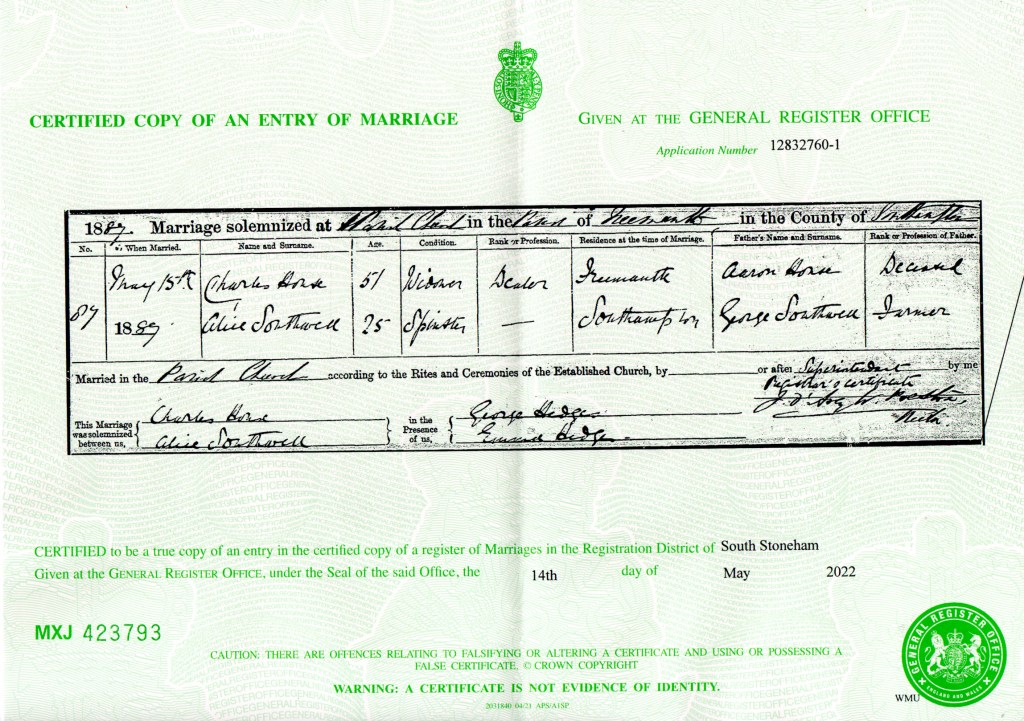 CERTIFIED COPY OF AN ENTRY OF MARRIAGE
GIVEN AT THE GENERAL REGISTER OFFICE
Application Number 12832760-1
1889. Marriage solemnized at Parish Church in the Parish of Freemantle in the County of Southampton
No. When Married. Name and Surname. Age. Condition. Rank or Profession. Residence at the time of Marriage. Father's Name and Surname. Rank or Profession of Father.
May 15th Charles House 51 Widower Dealer Freemantle Aaron House Deceased
1889 Alice Southwell 25 Spinster — Southampton George Southwell Farmer
Married in the Parish Church according to the Rites and Ceremonies of the Established Church, by or after Superintendent by me
Registrar's certificate
This Marriage was solemnized between us, Charles House Alice Southwell in the Presence of us, George Hedges Hedges
CERTIFIED to be a true copy of an entry in the certified copy of a register of Marriages in the Registration District of South Stoneham
Given at the GENERAL REGISTER OFFICE, under the Seal of the said Office, the 14th day of May 2022
MXJ 423793
CAUTION: THERE ARE OFFENCES RELATING TO FALSIFYING OR ALTERING A CERTIFICATE AND USING OR POSSESSING A
FALSE CERTIFICATE. © CROWN COPYRIGHT
WARNING: A CERTIFICATE IS NOT EVIDENCE OF IDENTITY.
2031840 04/21 APS/A1SP
WMU
GENERAL REGISTER OFFICE
ENGLAND AND WALES